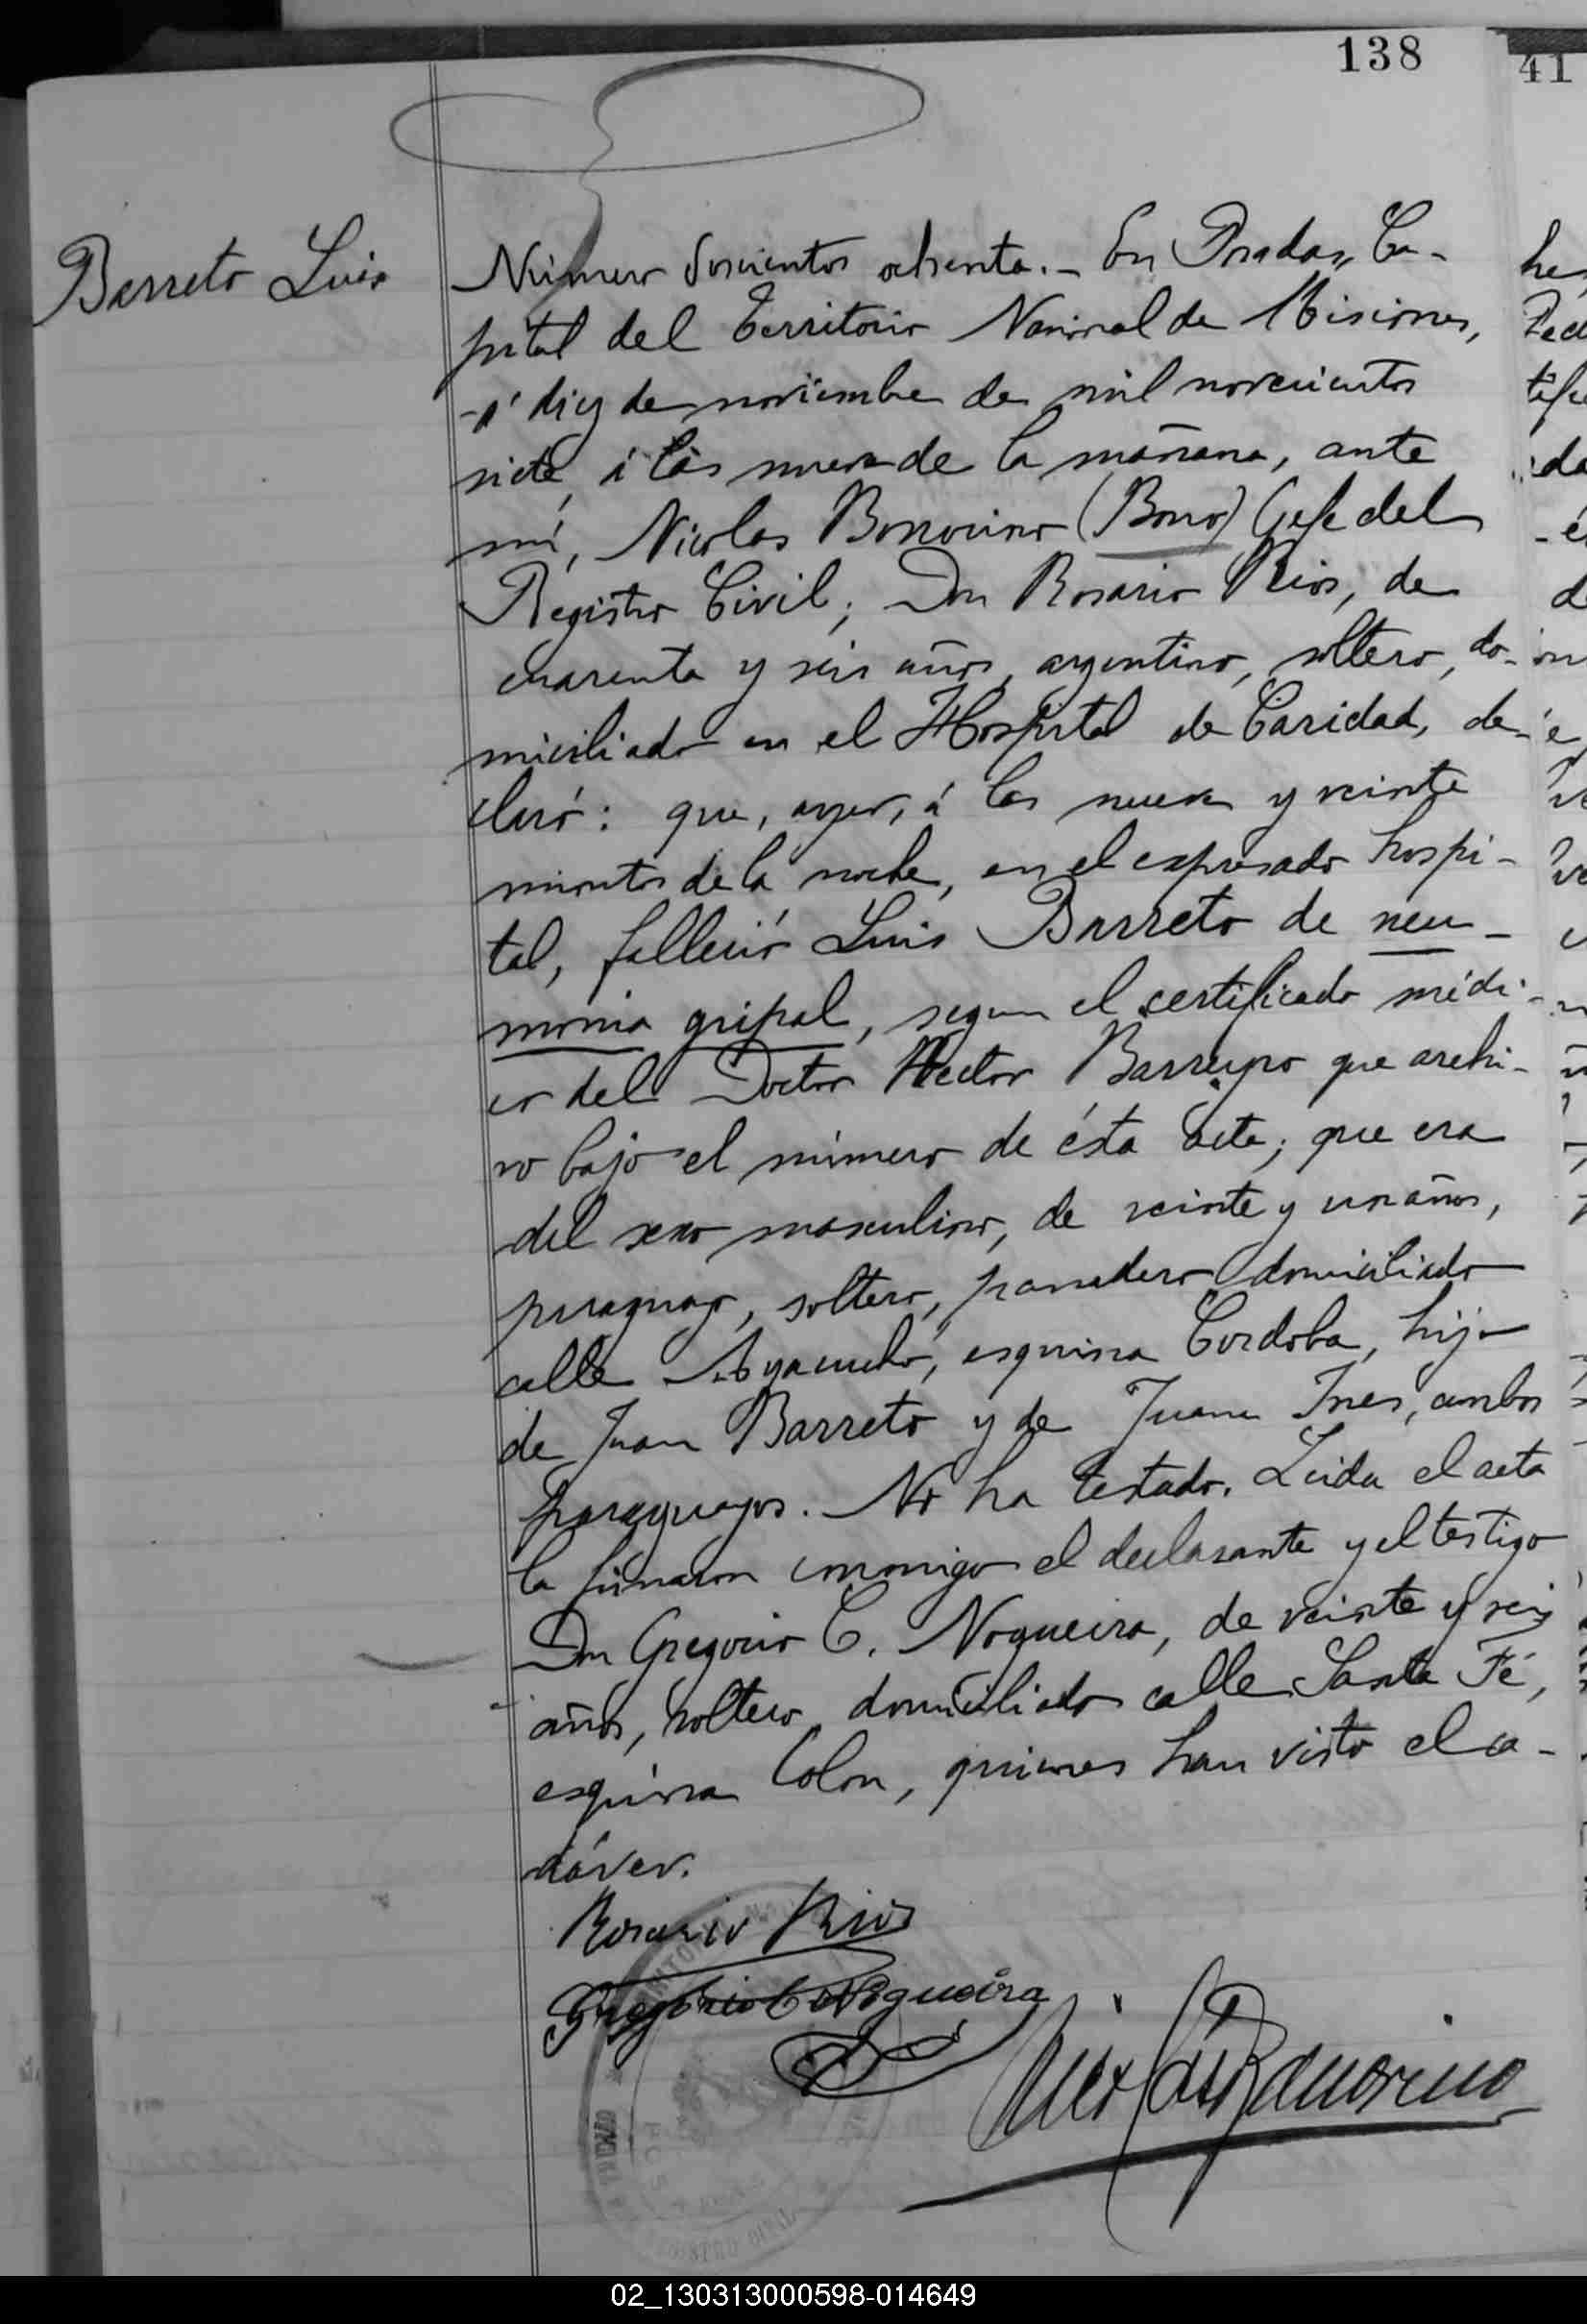 138
41
Barreto Luis
Número doscientos ochenta.- En Posadas, Ca-
pital del Territorio Nacional de Misiones,
-á diez de noviembre de mil novecientos
siete, á las nueve de la mañana, ante
mí, Nicolas Bonorino (Bono) Gefe del
Registro Civil; Don Rosario Rios, de
cuarenta y seis años, argentino, soltero, do-
miciliado en el Hospital de Caridad, de-
claró: que, ayer, á las nueve y veinte
minutos de la noche, en el expresado hospi-
tal, falleció Luis Barreto de neu-
monia gripal, segun el certificado médi-
co del Doctor Hector Barreyro que archi-
vo bajo el número de ésta acta; que era
del sexo masculino, de veinte y un años,
paraguayo, soltero, panadero domiciliado
calle Ayacucho, esquina Cordoba, hijo
de Juan Barreto y de Juana Ines, ambos
paraguayos. No ha testado. Leida el acta
la firmaron conmigo el declarante y el testigo
Don Gregorio C. Nogueira, de veinte y seis
años, soltero domiciliado calle Santa Fé,
esquina Colon, quienes han visto el ca-
dáver.
Rosario Rios
Gregorio C Nogueira
Nicolas Bonorino
02_130313000598-014649